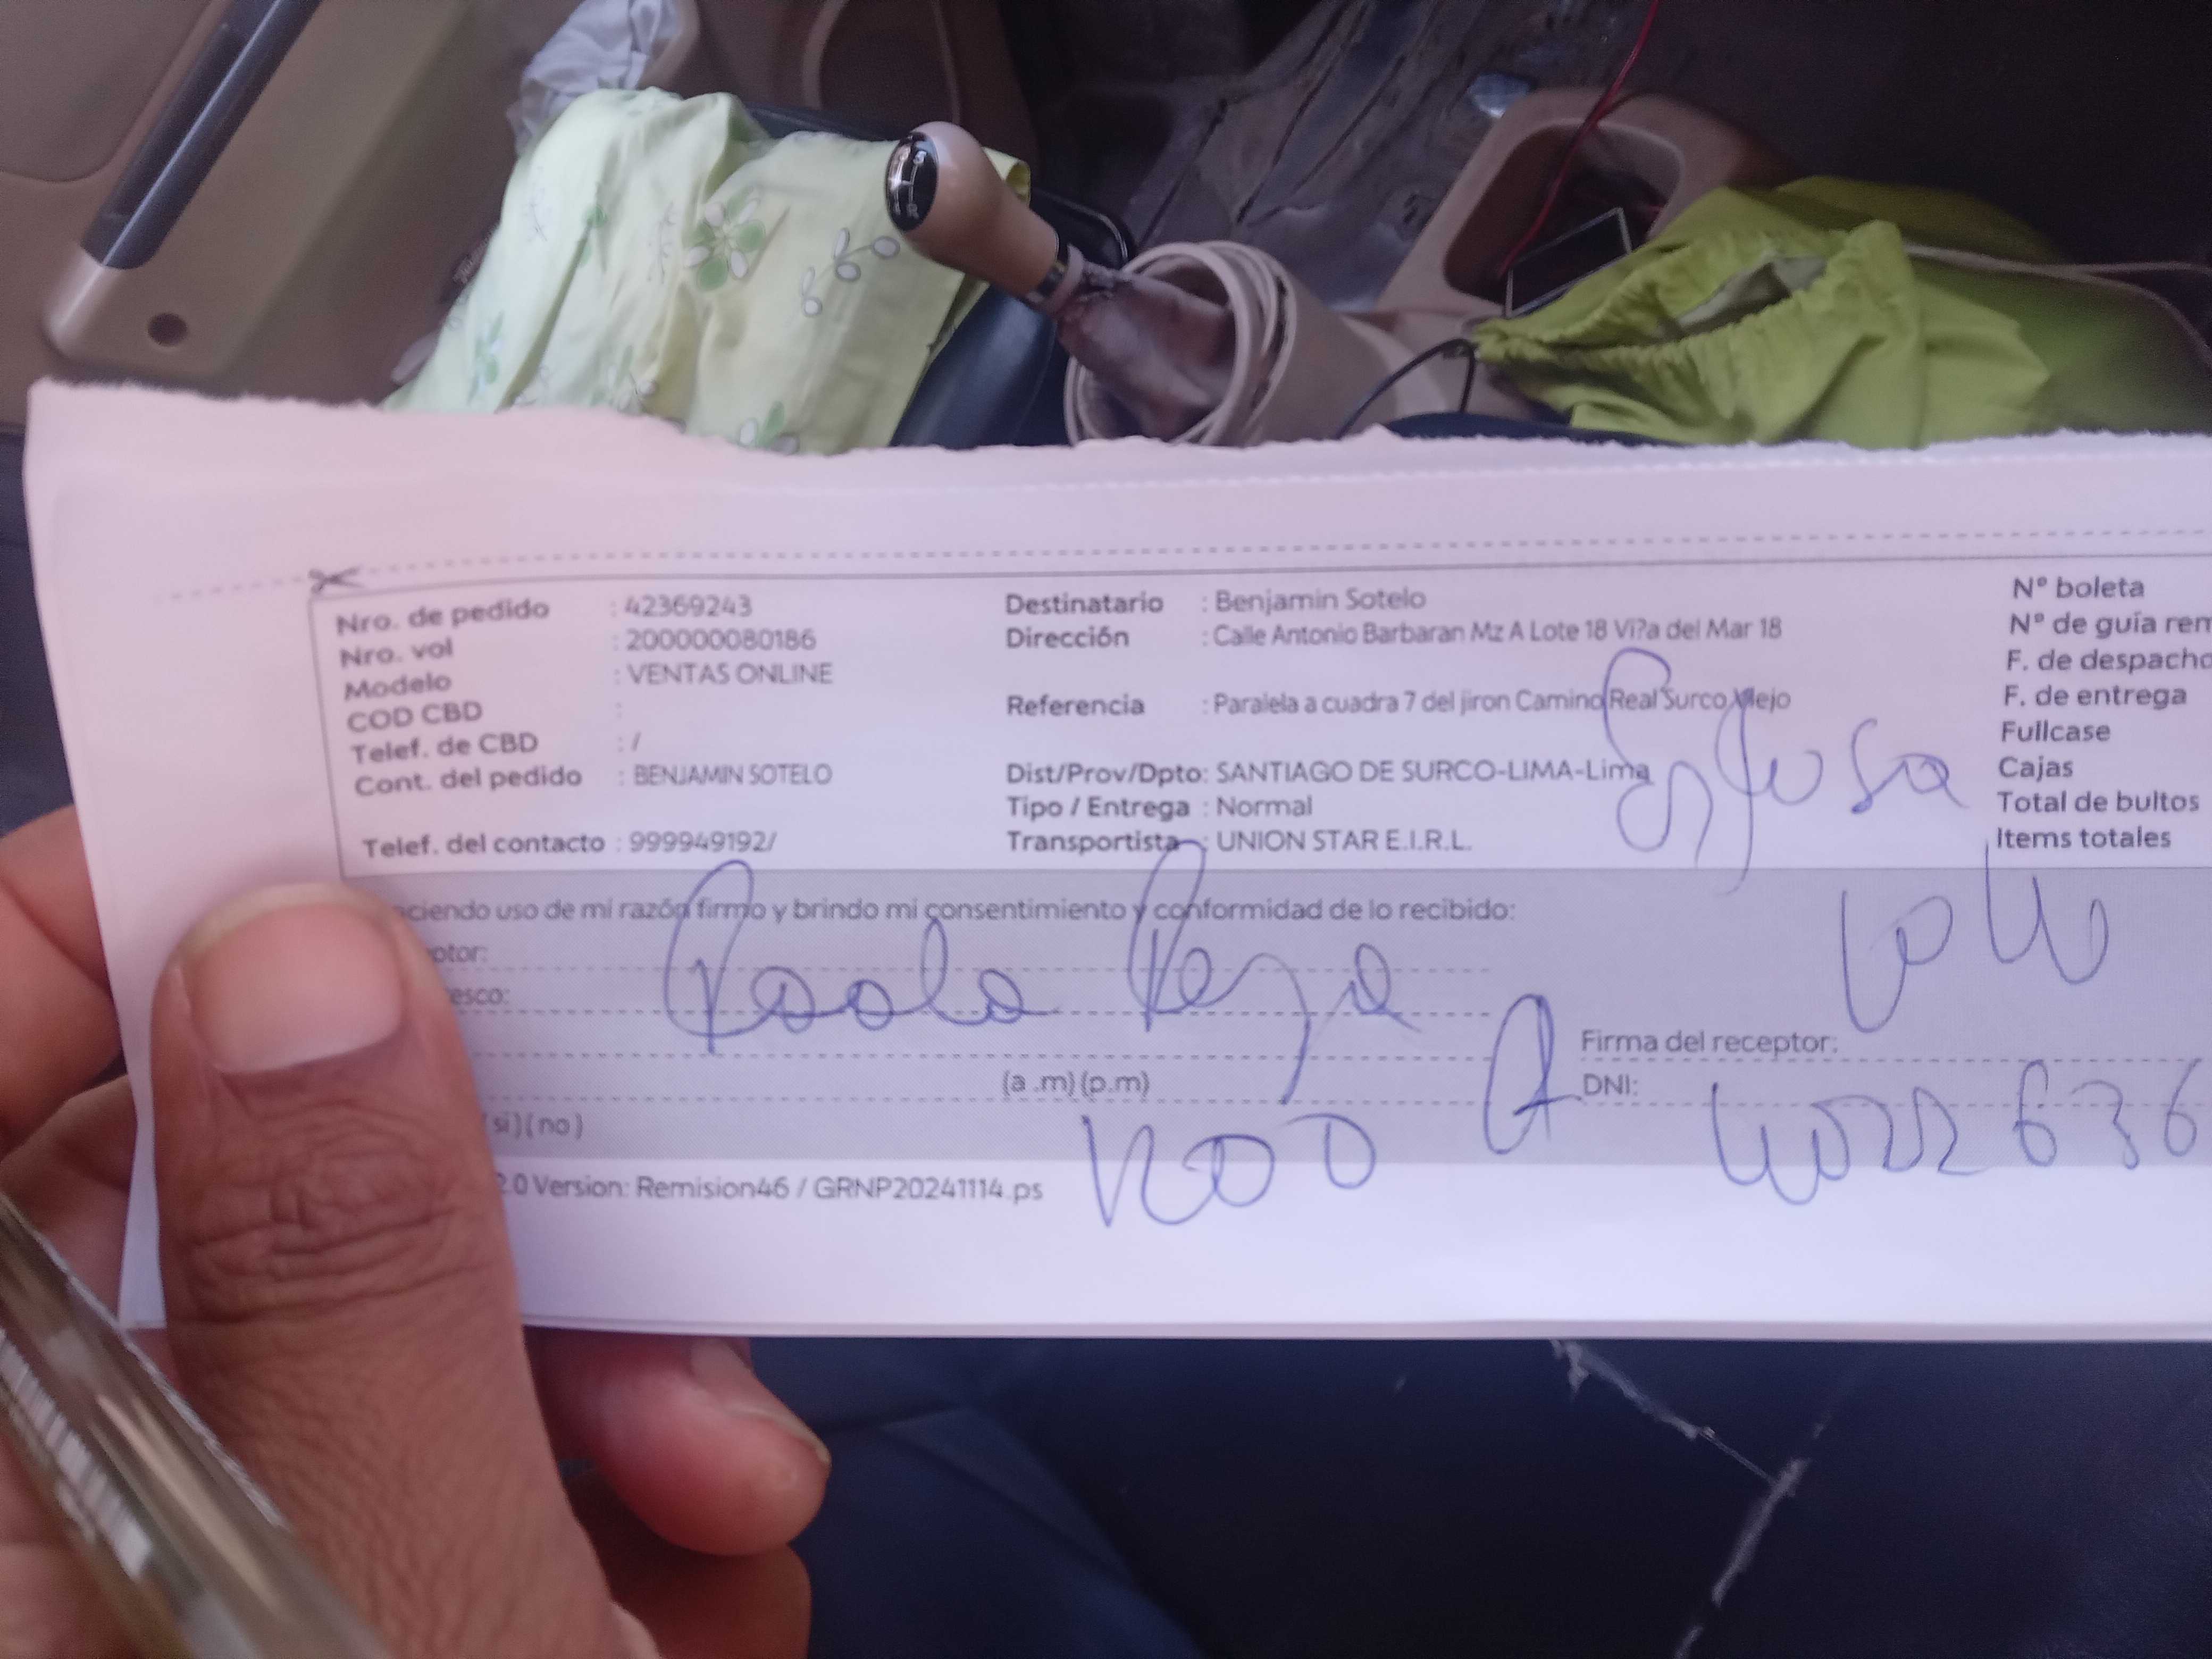 Nro. de pedido : 42369243
Nro. vol : 200000080186
Modelo : VENTAS ONLINE
COD CBD :
Telef. de CBD : /
Cont. del pedido : BENJAMIN SOTELO
Telef. del contacto : 999949192/
Destinatario : Benjamin Sotelo
Dirección : Calle Antonio Barbaran Mz A Lote 18 Vi?a del Mar 18
Referencia : Paralela a cuadra 7 del jiron Camino Real Surco Viejo
Dist/Prov/Dpto: SANTIAGO DE SURCO-LIMA-Lima
Tipo / Entrega : Normal
Transportista : UNION STAR E.I.R.L.
N° boleta
N° de guía rem
F. de despacho
F. de entrega
Fullcase
Cajas
Total de bultos
Items totales
Esposa
ciendo uso de mi razón firmo y brindo mi consentimiento y conformidad de lo recibido:
ptor:
esco:
Paola
(a .m) (p.m)
si) ( no )
Firma del receptor:
DNI: 4022636
2.0 Version: Remision46 / GRNP20241114.ps